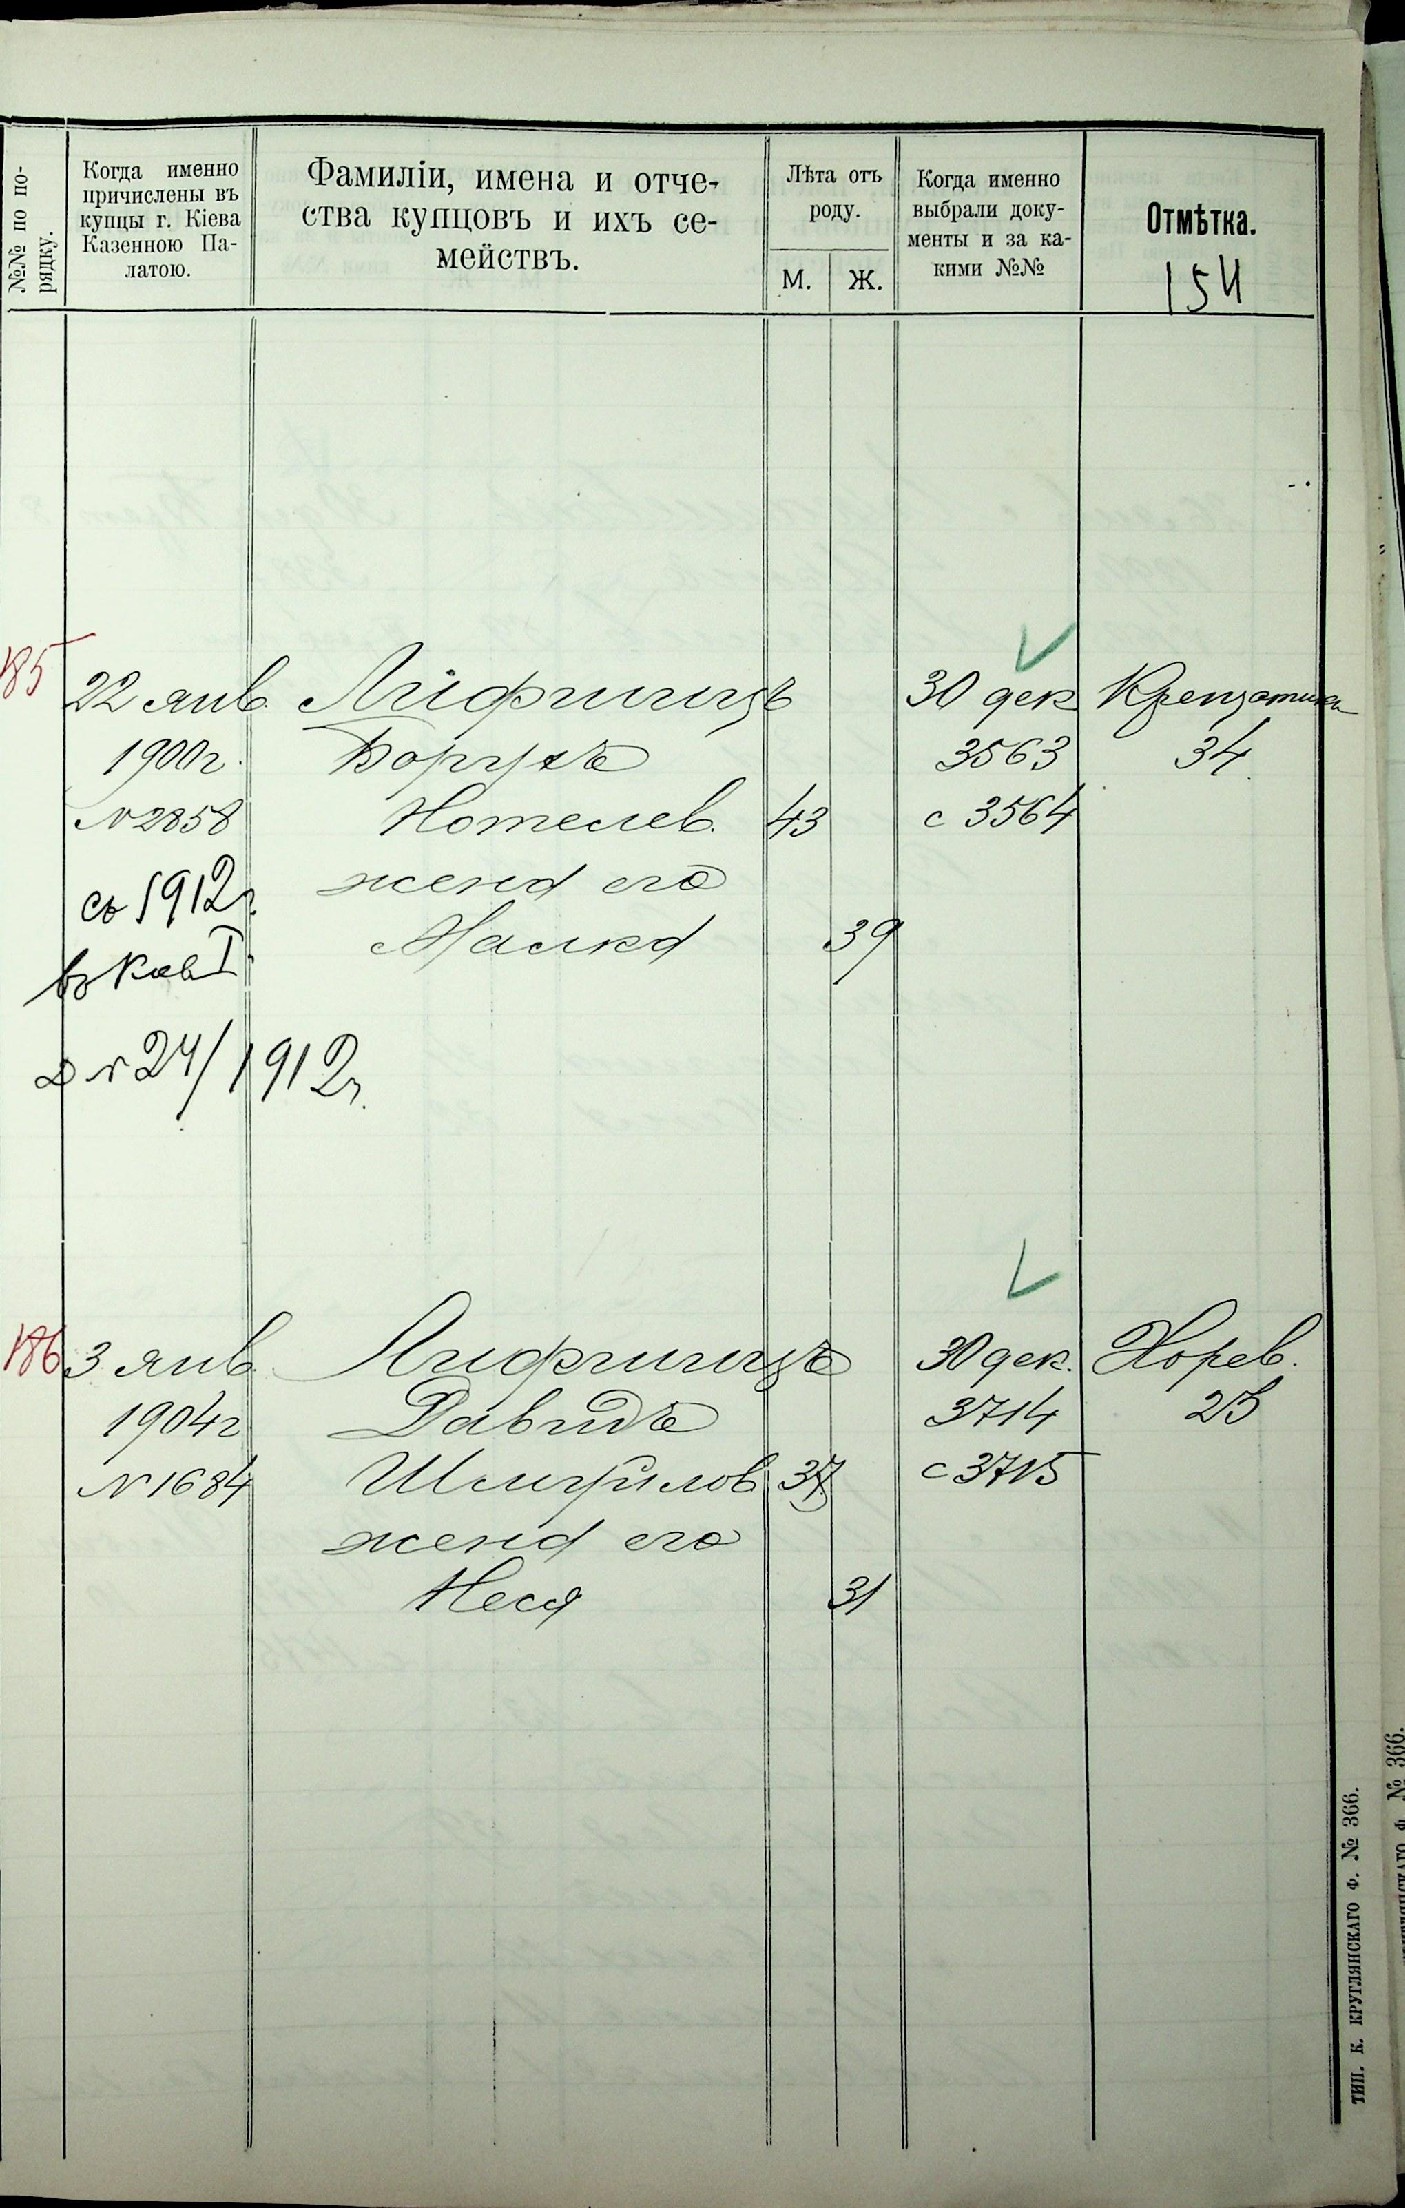 №№ по по-
рядку.
Когда именно
причислены въ
купцы г. Кіева
Казенною Па-
латою.
Фамиліи, имена и отче-
ства купцовъ и ихъ се-
мействъ.
Лѣта отъ
роду.
М.
Ж.
Когда именно
выбрали доку-
менты и за ка-
кими №№
Отмѣтка.
154
185
22 янв.
1900г.
№ 2858
съ 1912г.
въ Кіев I
Д № 24/1912г.
Лифшицъ
Борухъ
Нотелев. 43
жена его
Малка 39
30 дек
3563
с 3564
Крещатик
34
186
3 янв.
1904г
№ 1684
Лифшицъ
Давидъ
Шмуйлов 37
жена его
Неся 31
30 дек.
3714
с 3715
Хорев.
25
ТИП. К. КРУГЛЯНСКАГО Ф. № 366.
Ф. № 366.